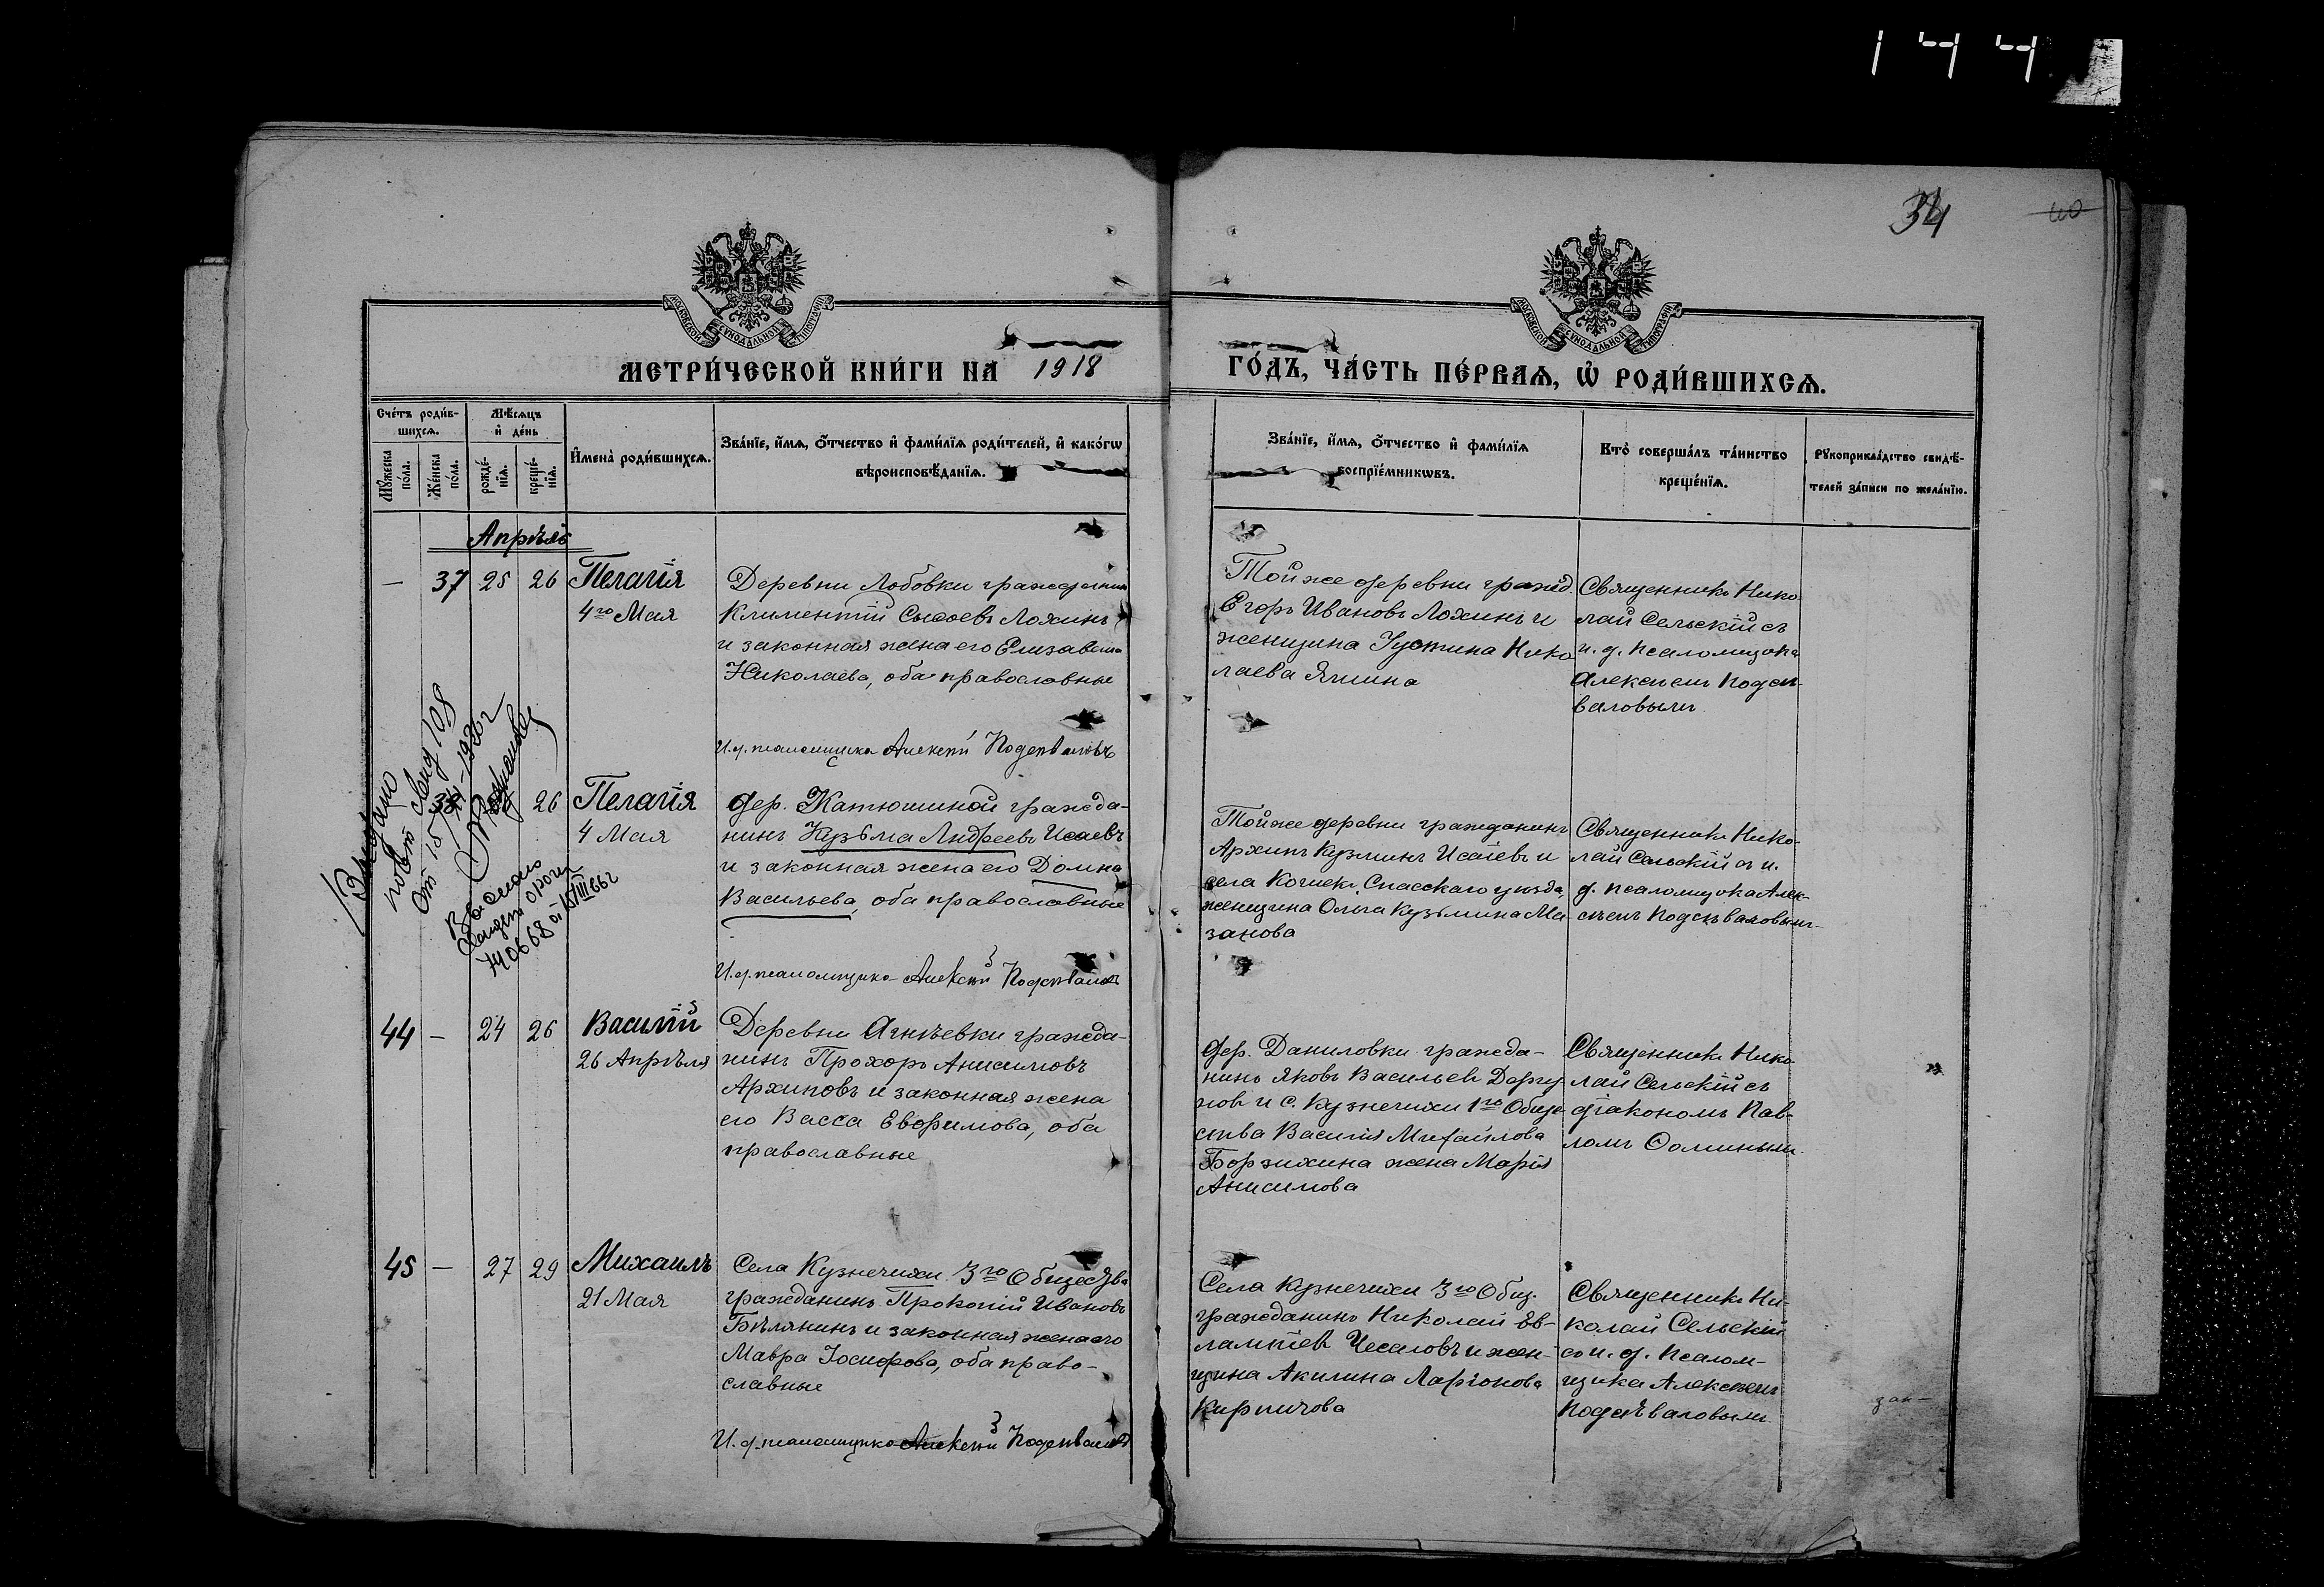 144
34
40
МОСКОВСКОЙ СѴНОДАЛЬНОЙ ТИПОГРАФІИ
МОСКОВСКОЙ СѴНОДАЛЬНОЙ ТИПОГРАФІИ
МЕТРИ́ЧЕСКОЙ КНИ́ГИ НА 1918
ГО́ДЪ, ЧА́СТЬ ПЕ́РВАѦ, Ѡ РОДИ́ВШИХСѦ.
Сче́тъ роди́в-
шихсѧ.
Мѣ́сѧцъ
и҆ де́нь
Мꙋ́жеска по́ла.
Же́нска по́ла.
рожде́-
нїѧ.
креще́-
нїѧ.
И҆мена̀ роди́вшихсѧ.
Зва́нїе, и҆́мѧ, ѻ҆́тчество и҆ фами́лїѧ роди́телей, и҆ како́гѡ
вѣроисповѣ́данїѧ.
Зва́нїе, и҆́мѧ, ѻ҆́тчество и҆ фами́лїѧ
воспрїе́мникѡвъ.
Кто̀ соверша́лъ та́инство
креще́нїѧ.
Рꙋкоприкла́дство свидѣ́-
телей за́писи по жела́нїю.
Апрѣль
— 37 25 26 Пелагія
4го Мая
Деревни Лобовки гражданинъ
Климентій Сысоевъ Лохинъ
и законная жена его Елизавета
Николаева, оба православные
И. д. псаломщика Алексѣй Подсѣваловъ
Той же деревни гражд.
Егоръ Ивановъ Лохинъ и
женщина Іустина Нико
лаева Ямина
Священникъ Нико
лай Сельскій съ
и. д. псаломщика
Алексѣемъ Подсѣ-
валовымъ
26 Пелагія
4 Мая
дер. Катюшиной гражда-
нинъ Кузьма Андреевъ Исаевъ
и законная жена его Домна
Васильева, оба православные
И. д. псаломщика Алексѣй Подсѣваловъ
Той же деревни гражданинъ
Архипъ Кузминъ Исаевъ и
села Кочиекъ, Спасскаго уѣзда,
женщина Ольга Кузьмина Ма
занова
Священникъ Нико-
лай Сельскій съ и.
д. псаломщика Алек-
сѣемъ Подсѣваловымъ
Выдано
от 15
1920 г
Выдано
740668
44 — 24 26 Василій
26 Апрѣля
Деревни Агнѣевки гражда-
нинъ Прохоръ Анисимовъ
Архиповъ и законная жена
его Васса Евфимова, оба
православные
дер. Даниловки гражда-
нинъ Яковъ Васильевъ Дергу
новъ и с. Кузнечихи 1го Обще
ства Василія Михайлова
Борзихина жена Марія
Анисимова
Священникъ Нико
лай Сельскій съ
діакономъ Пав-
ломъ Ѳоминымъ
45 — 27 29 Михаилъ
21 Мая
Села Кузнечихи 3го Общества
гражданинъ Прокопій Ивановъ
Бѣлянинъ и законная жена его
Мавра Іосифова, оба право-
славные
И. д. псаломщика Алексѣй Подсѣваловъ
Села Кузнечихи 3го Общ.
гражданинъ Николай Ев-
лампіевъ Чесаловъ и жен-
щина Акилина Ларіонова
Кирпичова
Священникъ Ни-
колай Сельскій
съ и. д. псалом-
щика Алексѣемъ
Подсѣваловымъ